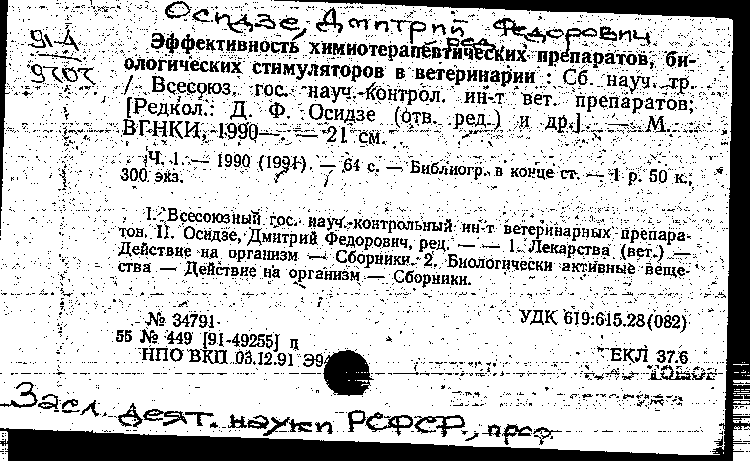 Осидзе, Дмитрий Федорович
ред.
91-А
Эффективность химиотерапевтических препаратов, би-
ологических стимуляторов в ветеринарии : Сб. науч. тр.
/ Всесоюз. гос. науч.-контрол. ин-т вет. препаратов;
[Редкол.: Д. Ф. Осидзе (отв. ред.) и др.] — М.
ВГНКИ, 1990— — 21 см.
Ч. 1. — 1990 (1991). — 64 с. — Библиогр. в конце ст. — 1 р. 50 к.,
300 экз.
I. Всесоюзный гос. науч.-контрольный ин-т ветеринарных препара-
тов. II. Осидзе, Дмитрий Федорович, ред. — — 1. Лекарства (вет.) —
Действие на организм — Сборники. 2. Биологически активные веще-
ства — Действие на организм — Сборники.
№ 34791
УДК 619:615.28(082)
55 № 449 [91-49255] п
НПО ВКП 03.12.91 Э94
ЕКЛ 37.6
Засл. деят. науки РСФСР, проф.